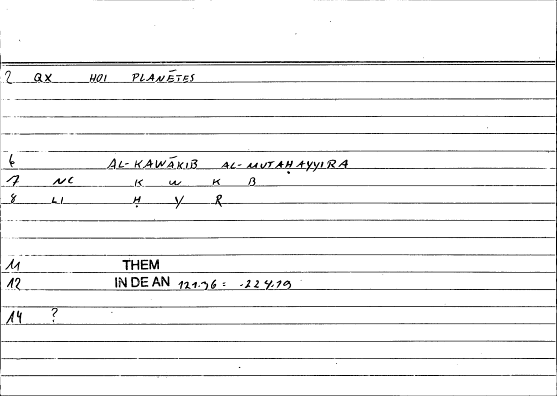 2 QX HOI PLANĒTES
6 AL-KAWĀKIB AL-MUTAḤAYYIRA
7 NC K W K B
8 LI Ḥ Y R
11 THEM
12 IN DE AN 121.36 = -224.19
14 ?